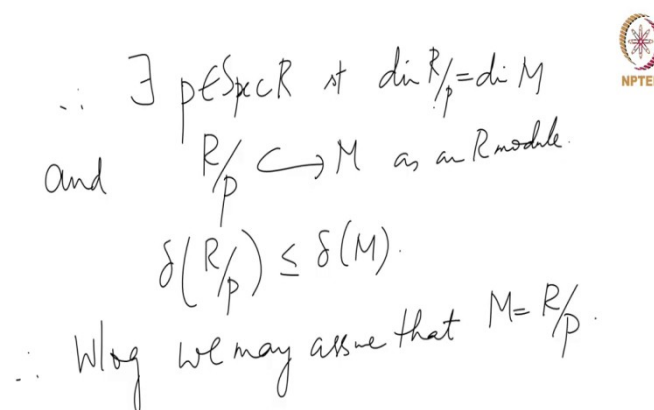 ∴ ∃ p∈Spec R st dim R/p = dim M
and R/p ↪ M as an R module.
δ(R/p) ≤ δ(M).
∴ Wlog we may assume that M = R/p.
NPTEL